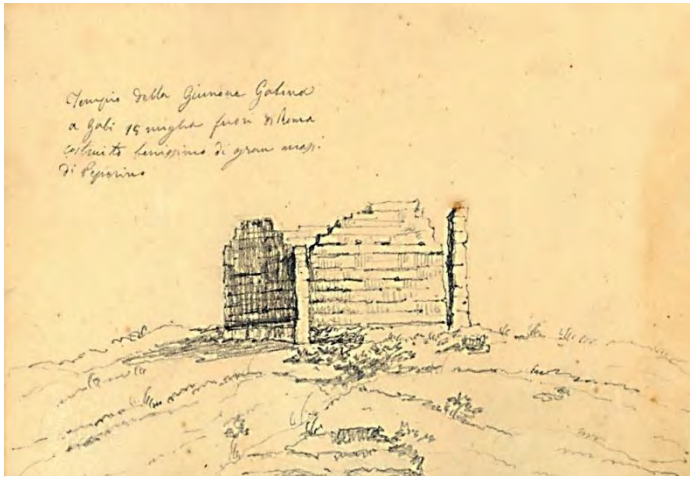 Tempio della Giunone Gabina
a Gabi 15 miglia fuori di Roma
costruito benissimo di gran massi
di Peperino